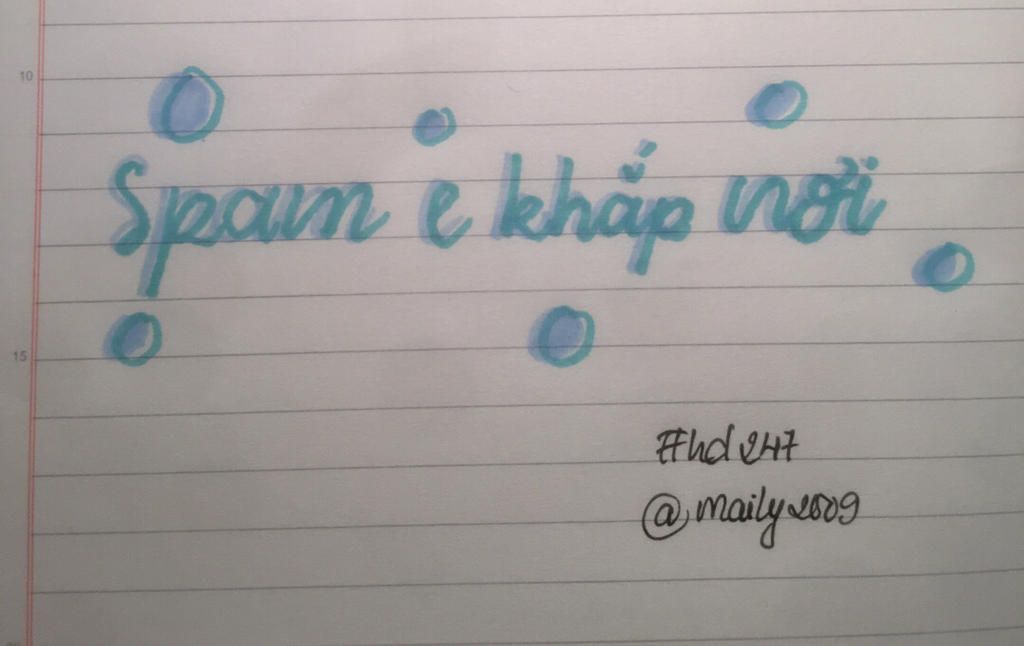 10
Spam e khắp nơi
15
#hd247
@maily2009